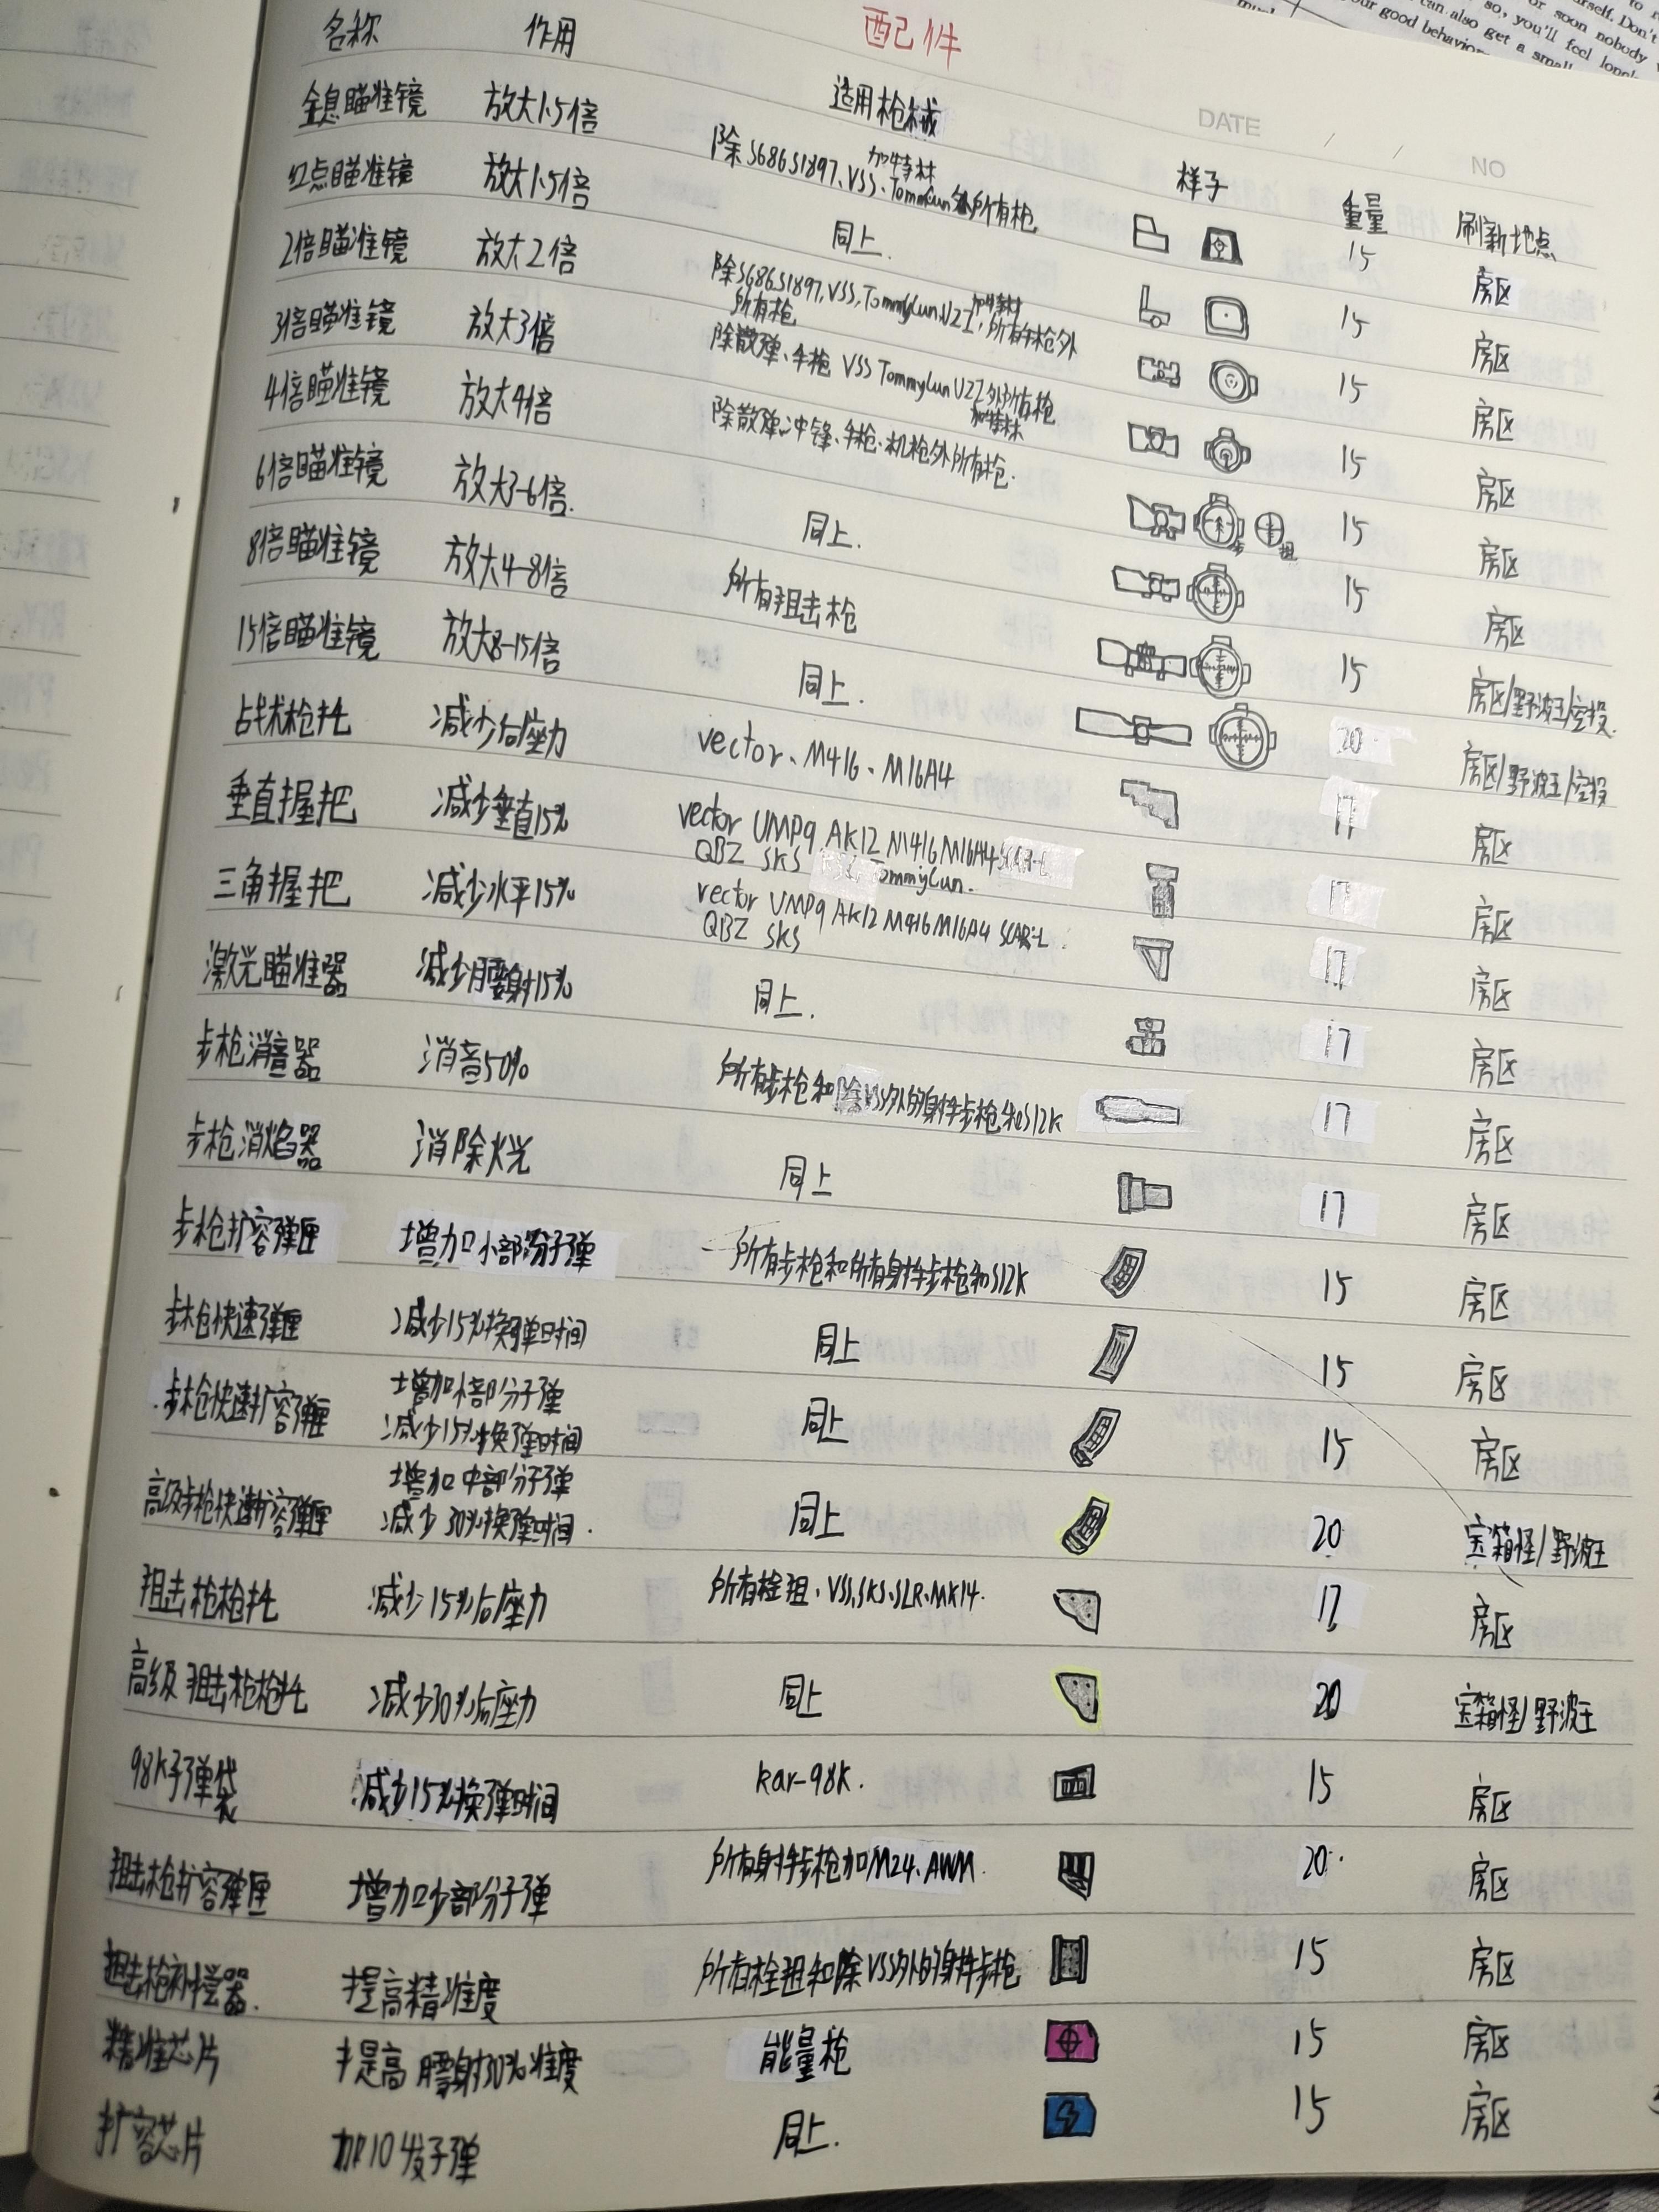 配件
DATE / /
NO
名称 作用 适用枪械 样子 重量 刷新地点
全息瞄准镜 放大1.5倍 除S686S1897、VSS、TommyGun加特林外所有枪 15 房区
红点瞄准镜 放大1.5倍 同上. 15 房区
2倍瞄准镜 放大2倍 除S686S1897,VSS,TommyGun、UZI,加特林,所有手枪外所有枪 15 房区
3倍瞄准镜 放大3倍 除散弹、手枪 VSS TommyGun UZI加特林外所有枪 15 房区
4倍瞄准镜 放大4倍 除散弹、冲锋、手枪、机枪外所有枪. 15 房区
6倍瞄准镜 放大3-6倍. 同上. 15 房区
8倍瞄准镜 放大4-8倍 所有狙击枪 15 房区/野波王/空投.
15倍瞄准镜 放大8-15倍 同上. 20 房区/野波王/空投
战术枪托 减少后座力 vector、M416、M16A4 17 房区
垂直握把 减少垂直15% vector UMP9 AK12 M416 M16A4 SCAR-L
QBZ SKS TommyGun. 17 房区
三角握把 减少水平15% vector UMP9 AK12 M416 M16A4 SCAR-L
QBZ SKS 17 房区
激光瞄准器 减少腰射15% 同上. 17 房区
步枪消音器 消音50% 所有步枪和除VSS外的射手步枪和S12K 17 房区
步枪消焰器 消除火光 同上 17 房区
步枪扩容弹匣 增加小部分子弹 所有步枪和所有射手步枪和S12K 15 房区
步枪快速弹匣 减少15%换弹时间 同上 15 房区
步枪快速扩容弹匣 增加小部分子弹
减少15%换弹时间 同上 15 房区
高级步枪快速扩容弹匣 增加中部分子弹
减少30%换弹时间. 同上 20 宝箱怪/野波王
狙击枪枪托 减少15%后座力 所有栓狙、VSS、SKS、SLR、MK14. 17 房区
高级狙击枪枪托 减少30%后座力 同上 20 宝箱怪/野波王
98K子弹袋 减少15%换弹时间 kar-98K. 15 房区
狙击枪扩容弹匣 增加少部分子弹 所有射手步枪加M24、AWM. 20 房区
狙击枪补偿器. 提高精准度 所有栓狙和除VSS外的射手步枪 15 房区
精准芯片 提高腰射30%准度 能量枪 15 房区
扩容芯片 加10发子弹 同上. 15 房区